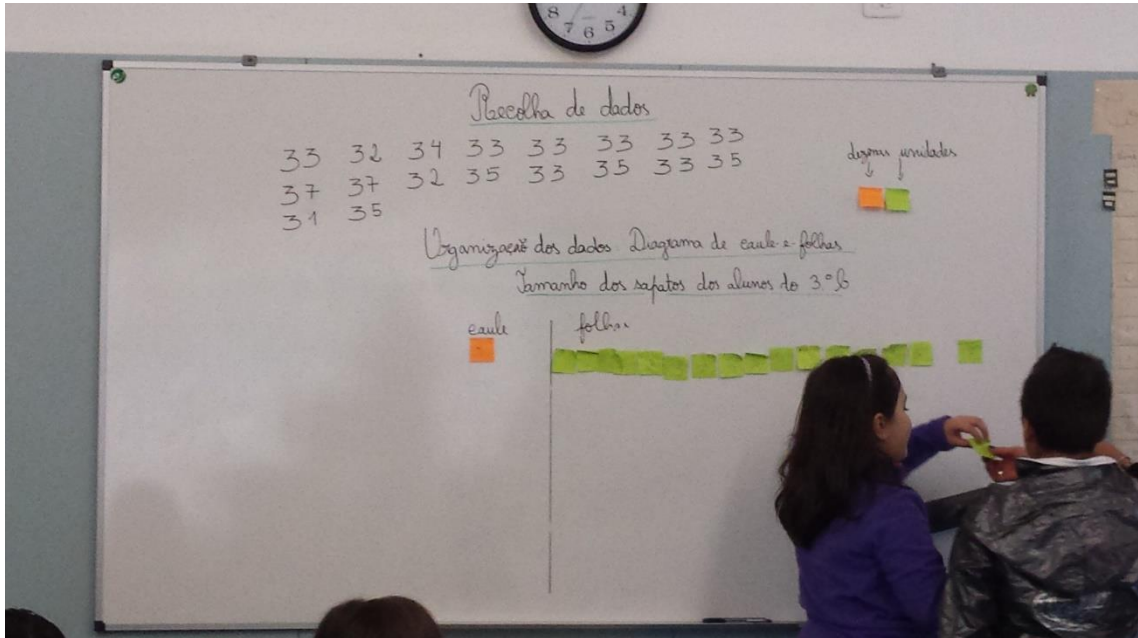 8 7 6 5 4
Recolha de dados
33 32 34 33 33 33 33 33
37 37 32 35 33 35 33 35
31 35
dezenas unidades
Organização dos dados: Diagrama de caule-e-folhas
Tamanho dos sapatos dos alunos do 3º B
caule folhas